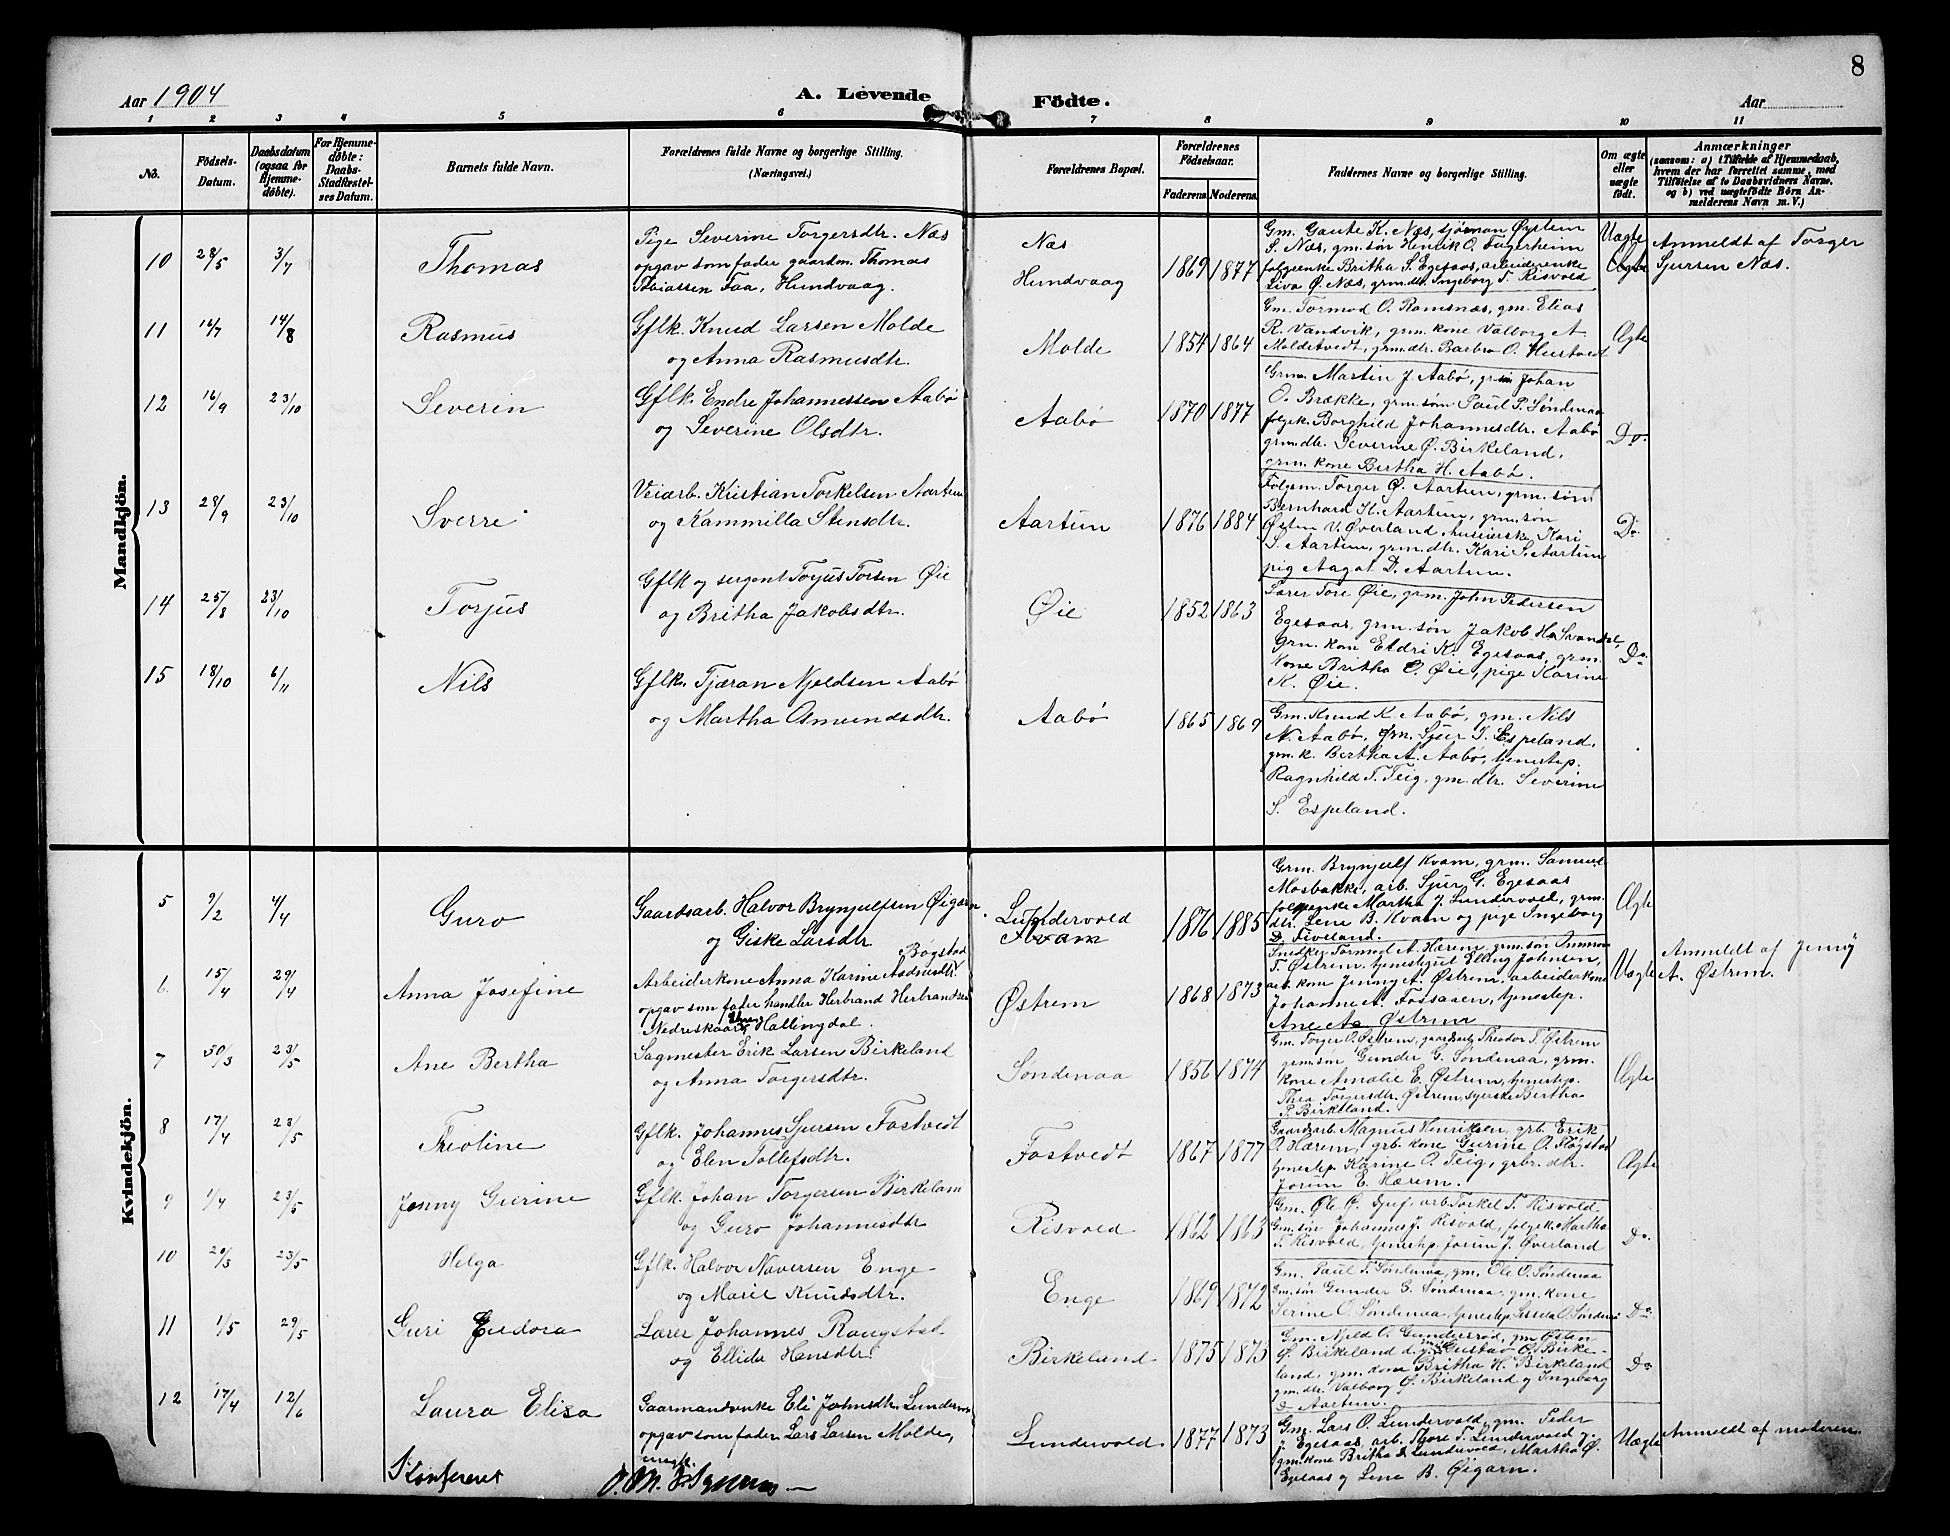 8
Aar 1904
A. Levende Födte.
Aar
1 2 3 4 5 6 7 8 9 10 11
No.
Födsels-Datum.
Daabsdatum (ogsaa for Hjemmedöbte).
For Hjemmedöbte: Daabs-Stadfæstelses Datum.
Barnets fulde Navn.
Forældrenes fulde Navne og borgerlige Stilling.
(Næringsvei.)
Forældrenes Bopæl.
Forældrenes Födselsaar.
Faderens. Moderens.
Faddernes Navne og borgerlige Stilling.
Om ægte eller uægte födt.
Anmærkninger
(saasom: a) i Tilfælde af Hjemmedaab, hvem der har forrettet samme, med Tilföielse af to Daabsvidners Navne, og b) ved uægtefödte Börn Anmelderens Navn m. V.)
Mandkjön.
10 28/5 3/7 Thomas
Pige Severine Torgersdtr. Næs
opgav som fader gaardm. Thomas
Tobiassen Faa, Hundvaag.
Næs
Hundvaag
1869 1877
Gm. Gaute K. Næs, sjøman Øystein
S. Næs, gm. søn Henrik O. Fagerheim
folgeenke Britha S. Egesaas, arbeiderenke
Liva Ø. Næs, grm. dtr. Ingeborg T. Risvold
Uægte
Anmeldt af Torger
Sjursen Næs.
11 16/7 14/8 Rasmus
Gflk. Knud Larsen Molde
og Anna Rasmusdtr.
Molde
1854 1864
Gm. Tormod O. Ramsnæs, gm. Elias
R. Vandvik, grm. kone Valborg A.
Moldetvedt, grm. dtr. Barbro O. Hustvedt
Ægte
12 16/9 23/10 Severin
Gflk. Endre Johannessen Aabø
og Severine Olsdtr.
Aabø
1870 1877
Grm. Martin J. Aabø, grm. Johan
O. Brække, grm. søn Paul P. Søndenaa
folgek. Borghild Johannesdtr. Aabø
grm. dtr. Severine Ø. Birkeland,
grm. kone Bertha H. Aabø.
Do.
13 28/9 23/10 Sverre
Veiarb. Kristian Torkelsen Aartun
og Kammilla Stensdtr.
Aartun
1876 1884
Folgem. Torger Ø. Aartun, grm. søn
Bernhard H. Aartun, grm. søn
Østen V. Øverland, husierske Kari
S. Aartun, grm. dtr. Kari S. Aartun
pig Aagot D. Aartun.
Do.
14 25/8 23/10 Torjus
Gflk og sergent Torjus Torsen Øie
og Britha Jakobsdtr.
Øie
1852 1863
Lærer Tore Øie, grm. John Pedersen
Egesaas, grm. søn Jakob H. Svandal,
grm. kon Eldri K. Egesaas, grm.
kone Britha O. Øie, pige Karine
K. Øie.
Do.
15 18/10 6/11 Nils
Gflk. Tjæran Njeldsen Aabø
og Martha Amundsdtr.
Aabø
1865 1869
Gm. Knud K. Aabø, gm. Nils
N. Aabø, grm. Sjur I. Espeland,
gm. k. Bertha A. Aabø, tjenestep.
Ragnhild T. Teig, gm. dtr. Severine
S. Espeland.
Kvindekjön.
5 9/2 4/4 Guro
Gaardsarb. Halvor Brynjulfsen Øigarn
og Giske Larsdtr
Lundervold
Kvam
1876 1885
Grm. Brynjulf Kvam, grm. Samuel
Mosbakke, arb. Sjur G. Egesaas
folgeenke Martha J. Lundervold, grm.
dtr. Lene B. Kvam og pige Ingeborg
D. Fiveland.
Ægte
6 15/4 29/4 Anna Josefine
Bøgstad
Arbeiderkone Anna Karine Asdmsdtr.
opgav som fader handler Herbrand Herbrandsen
Nedreskaar, Hallingdal.
Østrem
1868 1873
Snedker Tormod A. Hærem, grm. søn
T. Østrem, tjenestgut Elling Johnsen,
arb. kone Jenny A. Østrem, arbeiderkone
Johanne A. Fossaasen, tjenestep.
Ane A. Østrem
Uægte
Anmeldt af Jenny
A. Østrem.
7 30/3 23/5 Ane Bertha
Sagmester Erik Larsen Birkeland
og Anna Torgersdtr.
Søndenaa
1856 1874
Gm. Torger O. Østrem, gaardsarb. Theodor T. Østrem
grm. søn Gunder G. Søndenaa, grm.
kone Amalie E. Østrem, tjenestep.
Thea Torgersdtr. Østrem, syerske Bertha
P. Birkeland.
Ægte
8 17/4 23/5 Theoline
Gflk. Johannes Sjursen Fostvedt
og Elen Tollefsdtr.
Fostvedt
1867 1877
Gaardsarb. Magnus Henriksen, grb. Erik
O. Hærem, grb. kone Gurine O. Fløgstad
tjenestep. Karine O. Teig, grbr. dtr.
Jorun E. Hærem.
Ægte
9 1/4 23/5 Jenny Gurine
Gflk. Johan Torgersen Birkeland
og Guro Johannesdtr
Risvold
1862 1863
Gm. Ole Ø. Djuf, arb. Torkel T. Risvold
Gm. søn Johannes J. Risvold, folgek. Martha
T. Risvold, tjenestep. Jorun J. Øverland
Do.
10 20/3 23/5 Helga
Gflk. Halvor Naversen Enge
og Marie Knudsdtr.
Enge
1869 1872
Gm. Paul T. Søndenaa, gm. Ole O. Søndenaa
Gm. søn Gunder E. Søndenaa, gm. kone
Serine O. Søndenaa, tjenestep. Sissela O. Søndenaa
Do.
11 1/5 29/5 Guri Eudora
Lærer Johannes Raugstad
og Ellida Hansdtr.
Birkeland
1875 1873
Gm. Njeld O. Gundersrød, gm. Østen
Ø. Birkeland d.y. Gustav O. Birke-
land, gm. kone Britha H. Birkeland
gm. dtr. Valborg Ø. Birkeland og Ingeborg
D. Aartun.
Do
12 17/4 12/6 Laura Elisa
Gaarmandsenke Eli Johnsdtr. Lundervold
opgav som fader Lars Larsen Molde,
ungk.
Lundervold
1877 1873
Gm. Lars O. Lundervold, gm. Peder
J. Egesaas, arb. Thore T. Lundervold
gm. kone Britha Lundervold, Martha Ø.
Egesaas og Lene B. Øigarn.
Uægte
Anmeldt af moderen.
Konfereret